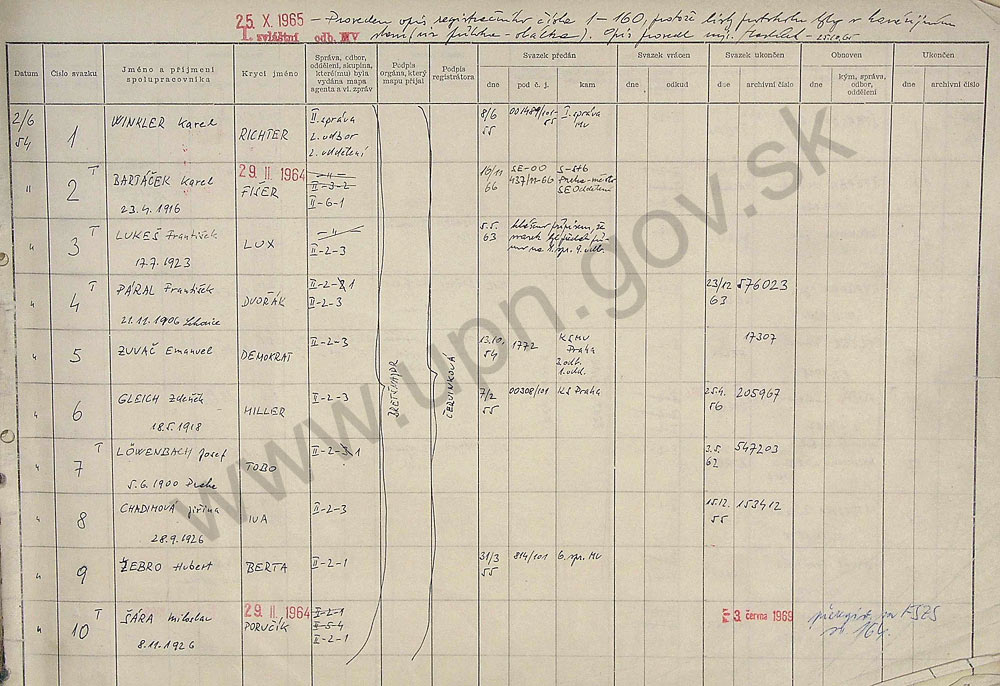 25 X. 1965 – Proveden opis registračního čísla 1–160, protože listy protokolu byly v
I. zvláštní odb. MV
stavu (viz příloha – obálka). Opis provedl 25.10.65
Datum
Číslo svazku
Jméno a příjmení spolupracovníka
Krycí jméno
Správa, odbor, oddělení, skupina, které(mu) byla vydána mapa agenta a vl. zpráv
Podpis orgána, který mapu přijal
Podpis registrátora
Svazek předán
Svazek vrácen
Svazek ukončen
Obnoven
Ukončen
dne
pod č. j.
kam
dne
odkud
dne
archivní číslo
dne
kým, správa, odbor, oddělení
dne
archivní číslo
2/6 54
1
WINKLER Karel
RICHTER
II. správa
2. odbor
2. oddělení
8/6 55
I. správa MV
"
2 T
BARTÁČEK Karel
23.4.1916
29 II 1964
FIŠER
–"–
II-3-2
II-6-1
16/11 66
SE-00
437/11-66
S-StB
Praha-město
SE Oddělení
"
3 T
LUKEŠ František
17.7.1923
LUX
–"–
II-2-3
5.5. 63
"
4 T
PÁRAL František
21.11.1906
DVOŘÁK
II-2-1
II-2-3
23/12 63
576023
"
5
ZUVAČ Emanuel
DEMOKRAT
II-2-3
13.10. 54
1772
KSMV
Praha
2. odb.
1. odd.
17307
"
6
GLEICH Zdeněk
18.5.1918
HILLER
II-2-3
7/2 55
00308/101
KS Praha
25.4. 56
205967
"
7 T
LÖWENBACH Josef
5.6.1900 Praha
TOBO
II-2-1
3.5. 62
547203
"
8
CHADIMOVÁ Jiřina
28.9.1926
IVA
II-2-3
15.12. 55
153412
"
9
ŽEBRO Hubert
BERTA
II-2-1
31/3 55
814/101
6. spr. MV
"
10 T
ŠÁRA Miloslav
8.11.1926
29 II 1964
PORUČÍK
I-2-1
II-5-4
II-2-1
3. června 1969
BRETŠNAJDR
ČERVINKOVÁ
www.upn.gov.sk